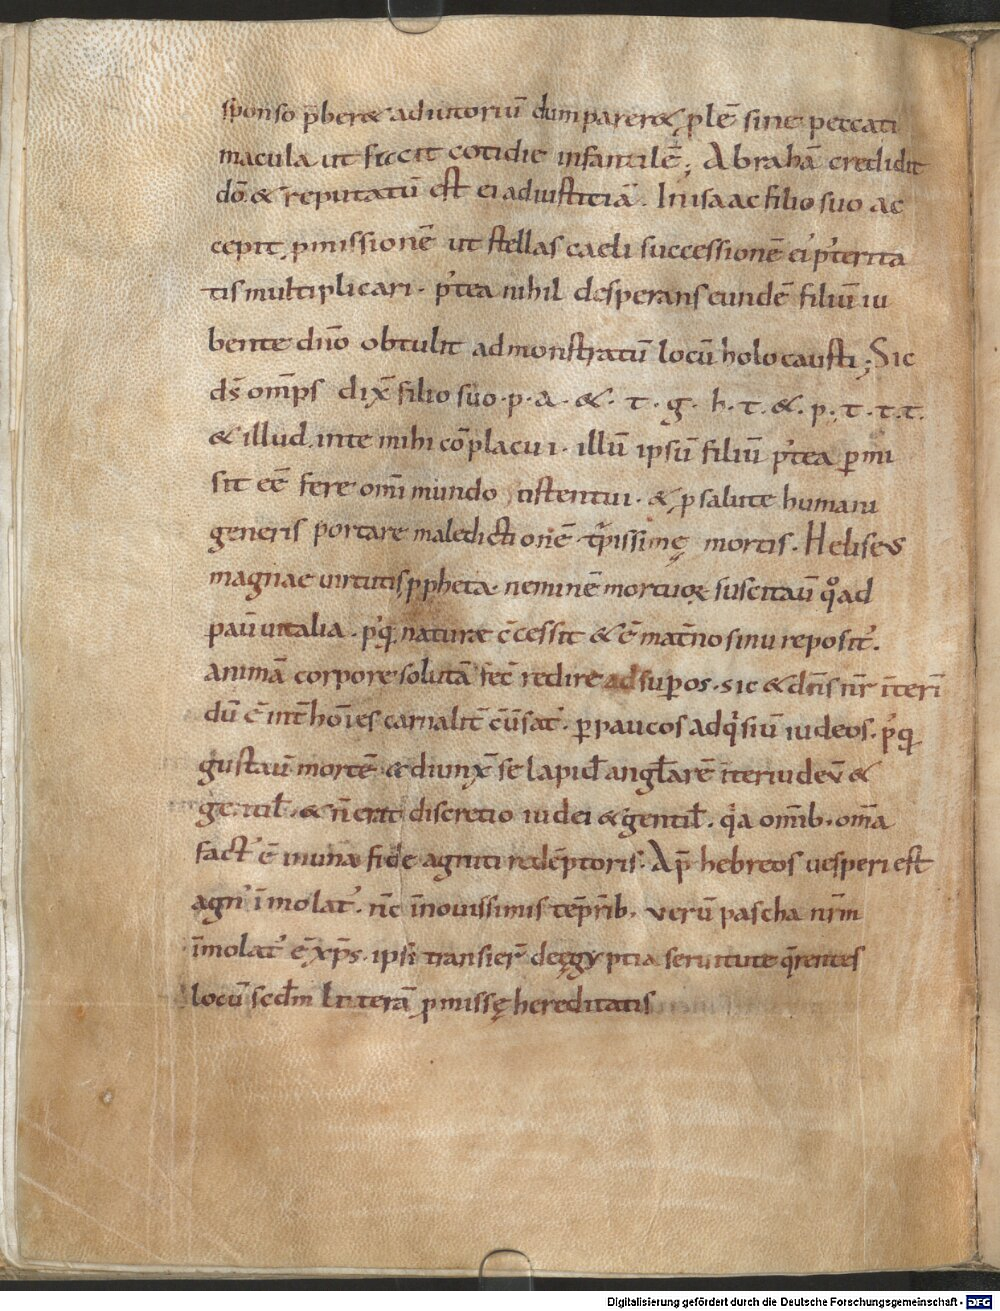 sponso p̄bere adiutoriū dum pareret ꝓlē sine peccati
macula ut facit cotidie infantilē; Abrahā credidit
dō & reputatū est ei adiustitiā. In isaac filio suo ac
cepit ꝓmissionē ut stellas caeli successionē ei p'terita
tis multiplicari. p'tea nihil desperans eundē filiū iu
bente dn̄o obtulit admonstratū locū holocausti; Sic
ds̄ om̄ps dix̄ filio suo. p. a. &. t. g. h. t. &. p. t. t. t.
& illud. inte mihi cōplacui. illū ipsū filiū p'tea ꝑmi
sit eē fere om̄i mundo ostentui. & ꝓ salute humani
generis portare maledictionē tp̄issimę mortis. Heliseus
magnae uirtutis ꝓpheta. neminē mortuoꝝ suscitau̅ qͦad
pau̅ uitalia. p'q̨ naturae c̄cessit & ē mat̄no sinu reposit'.
animā corpore solutā fec̄ redire ad suꝑos. sic & dn̄s nr̄ īteri
dū ē int̄ hoīes carnalit̄ cūsat'. ꝑ paucos adq'siu̅ iudeos. p'q̨
gustau̅ mortē. & diunx̄ se lapid̄ angl̄arē īter iudeu̅ &
gentil̄. & n̄ erat discretio iudei & gentil̄. q'a om̄ib. om̄a
fact' ē in una fide agniti redēptoris. Ap̄ hebreos uesperi est
agn' īmolat'. nc̄ īnouissimis tēp̄rib. uerū pascha nr̄m
īmolat' ē xp̄s. ipsi transier̄ de ęgyptia seruitute q̄rentes
locū scd̄m litterā ꝓmissę hereditatis
Digitalisierung gefördert durch die Deutsche Forschungsgemeinschaft - DFG